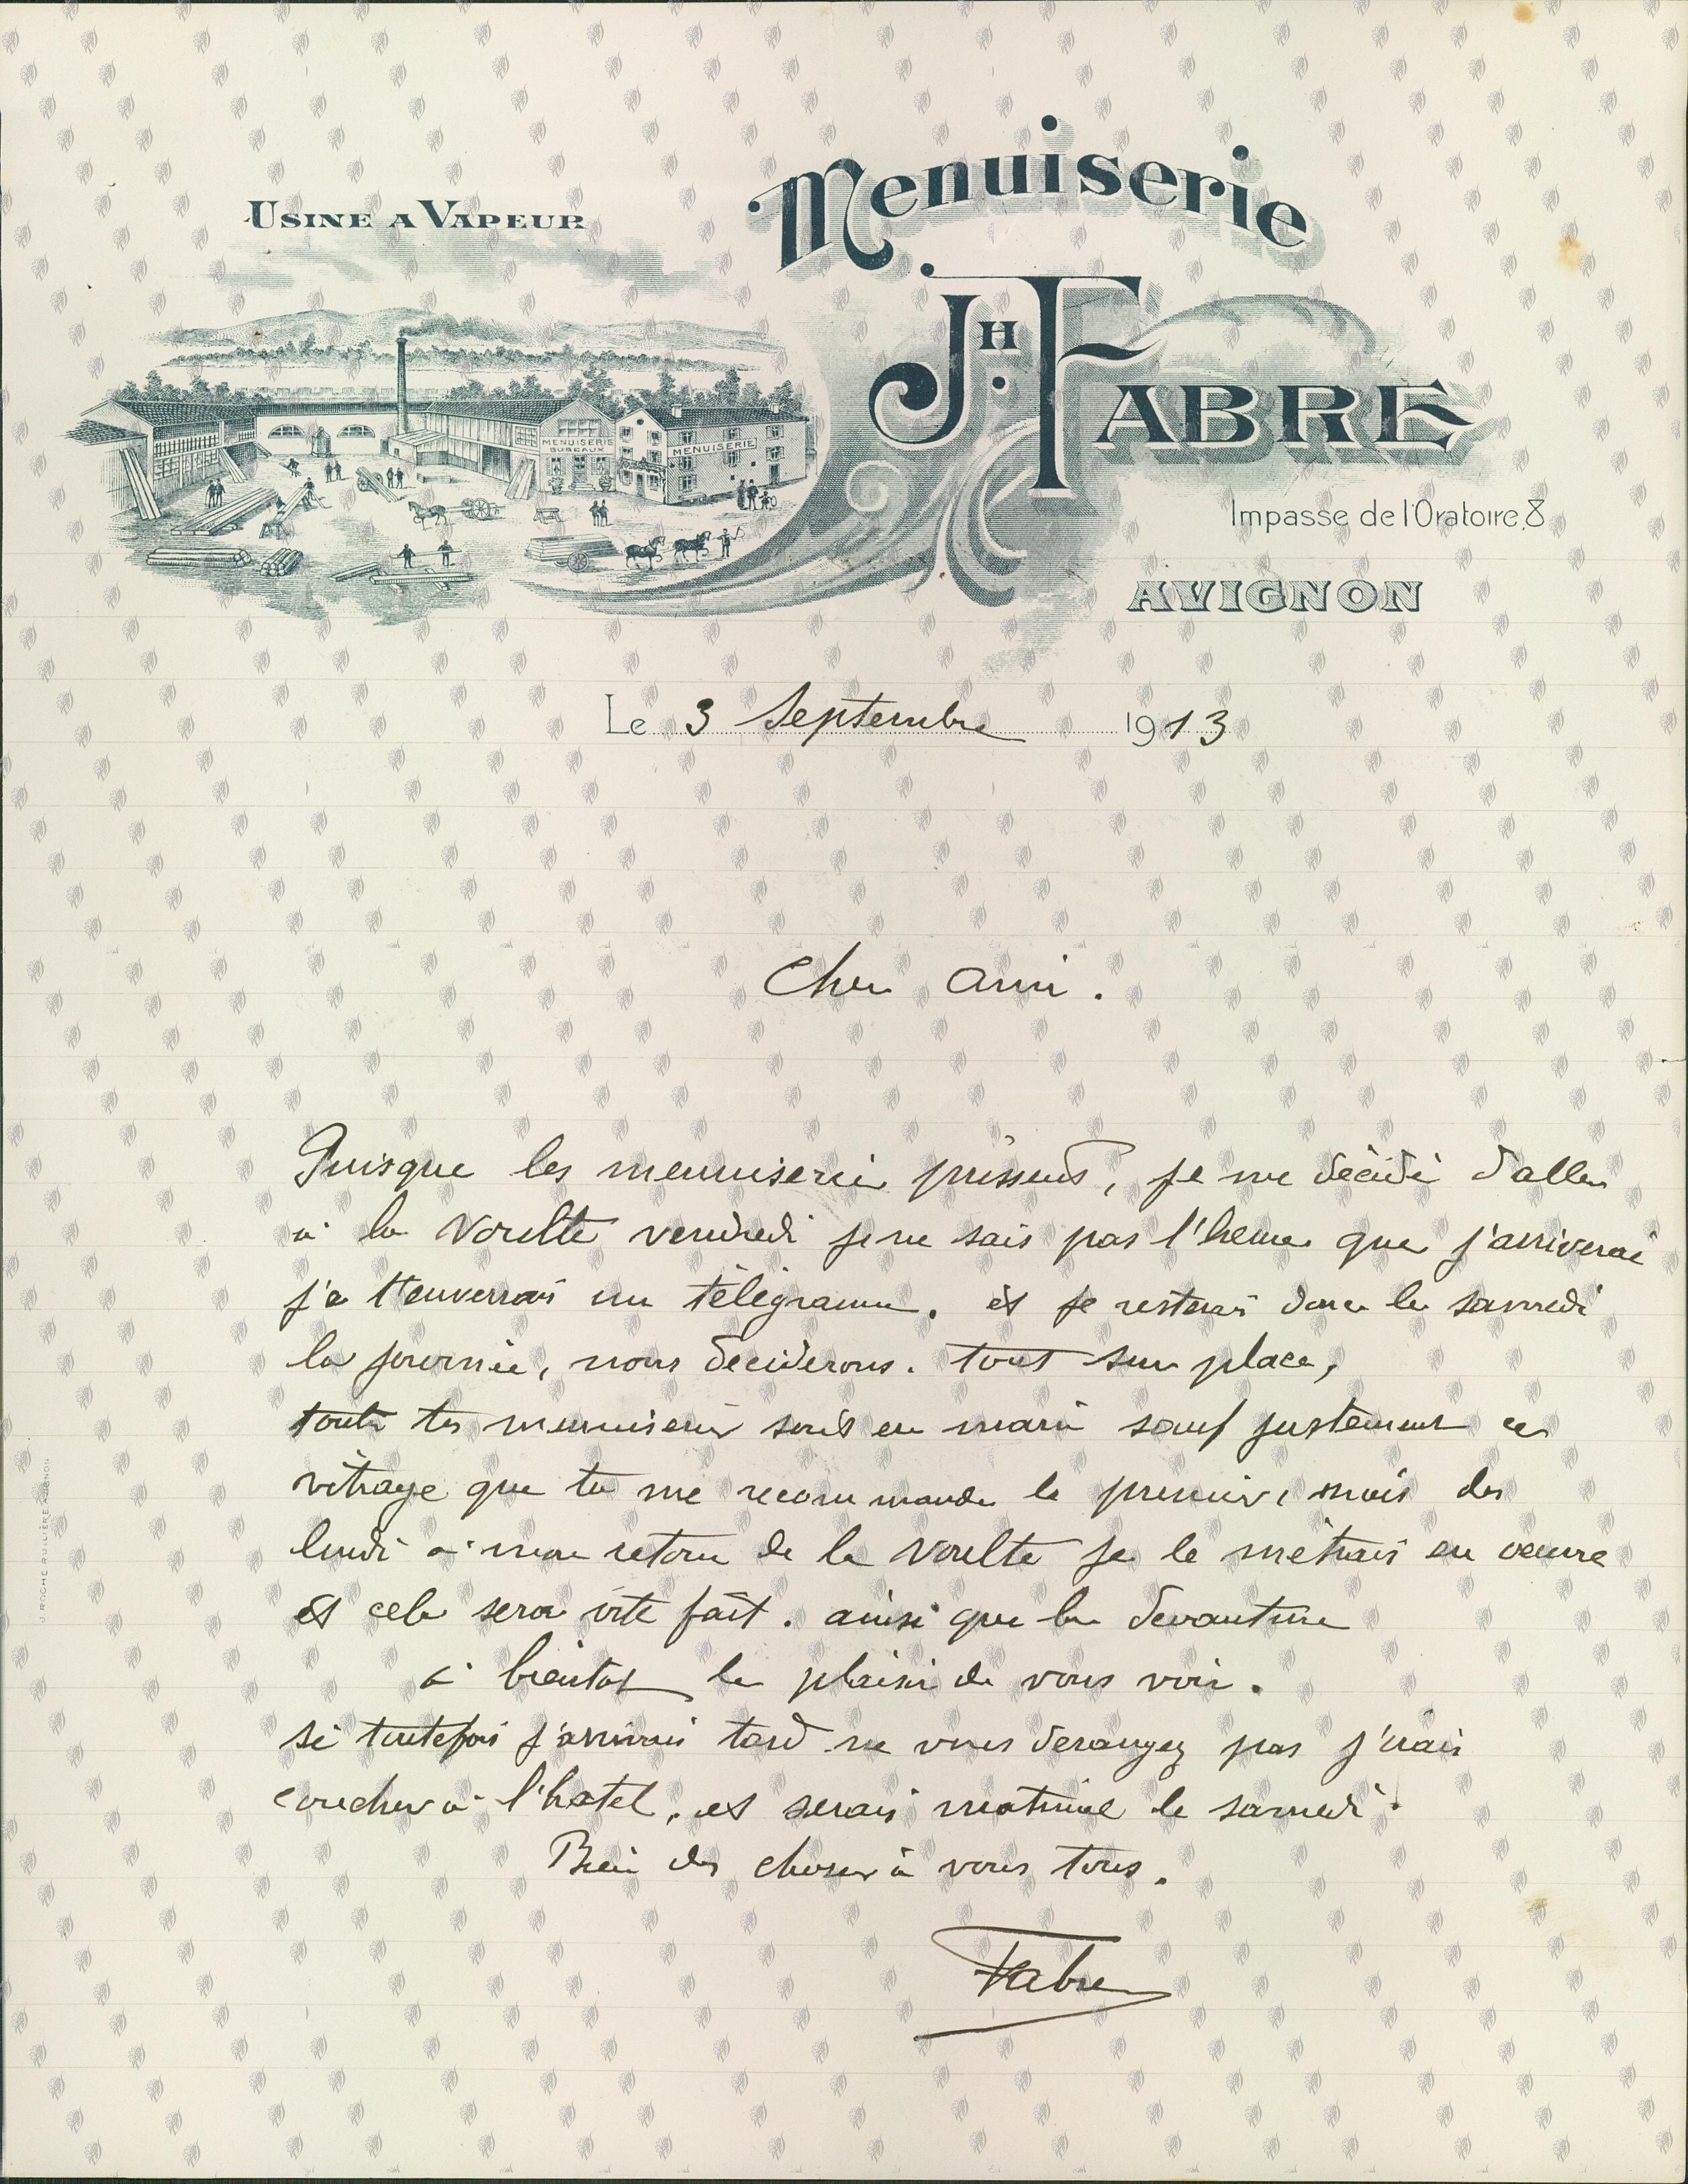 USINE A VAPEUR
Menuiserie
JH. FABRE
MENUISERIE
BUREAUX
MENUISERIE
Impasse de l'Oratoire, 8
AVIGNON
Le 3 Septembre 1913
Cher ami.
Puisque les menuiserie préssent, je me décide d'aller
à la Voulte vendredi je ne sais pas l'heure que j'arriverai
j'e t'enverrais un télégramme. et je resterai donc le samedi
la journée, nous déciderons. tout sur place,
toute tes menuiserie sont en main sauf justement ce
vitrage que tu me recommande le premier, mais des
lundi à mon retour de la Voulte je le métrais en oeuvre
et cela sera vite fait. ainsi que la devanture
à bientot le plaisir de vous voir.
si toutefois j'arrivais tard ne vous derangez pas j'irais
coucher à l'hotel, et serais matinal le samedi.
Bien des choses à vous tous.
Fabre
U. ROCHE RULLIÈRE AVIGNON